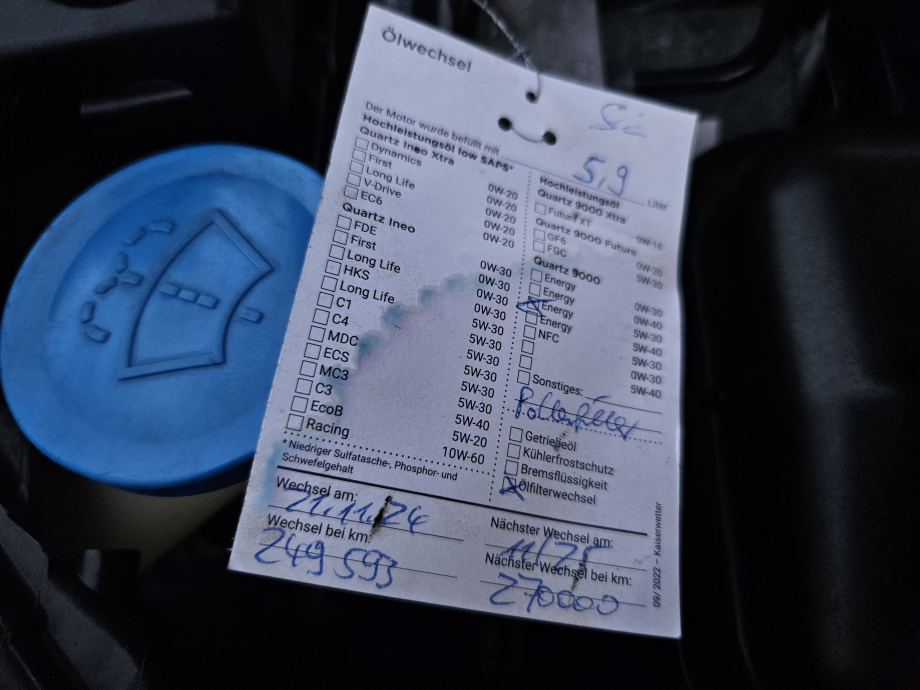 Ölwechsel
5,9 Liter
Der Motor wurde befüllt mit
Hochleistungsöl low SAPS*
Quartz Ineo Xtra
Dynamics 0W-20
First 0W-20
Long Life 0W-20
V-Drive 0W-20
EC6 0W-20
Quartz Ineo
FDE 0W-30
First 0W-30
Long Life 0W-30
HKS 0W-30
Long Life 5W-30
C1 5W-30
C4 5W-30
MDC 5W-30
ECS 5W-30
MC3 5W-30
C3 5W-40
EcoB 5W-20
Racing 10W-60
* Niedriger Sulfatasche-, Phosphor- und
Schwefelgehalt
Hochleistungsöl
Quartz 9000 Xtra
Future XT 0W-16
Quartz 9000 Future
GF6 0W-20
FGC 5W-30
Quartz 9000
Energy 0W-30
Energy 0W-40
Energy 5W-30
Energy 5W-40
NFC 5W-30
0W-30
5W-40
Sonstiges:
Pollenfilter
Getriebeöl
Kühlerfrostschutz
Bremsflüssigkeit
Ölfilterwechsel
Wechsel am:
21.11.24
Wechsel bei km:
249 593
Nächster Wechsel am:
11/25
Nächster Wechsel bei km:
270000
09/ 2022 – Kaiserwetter